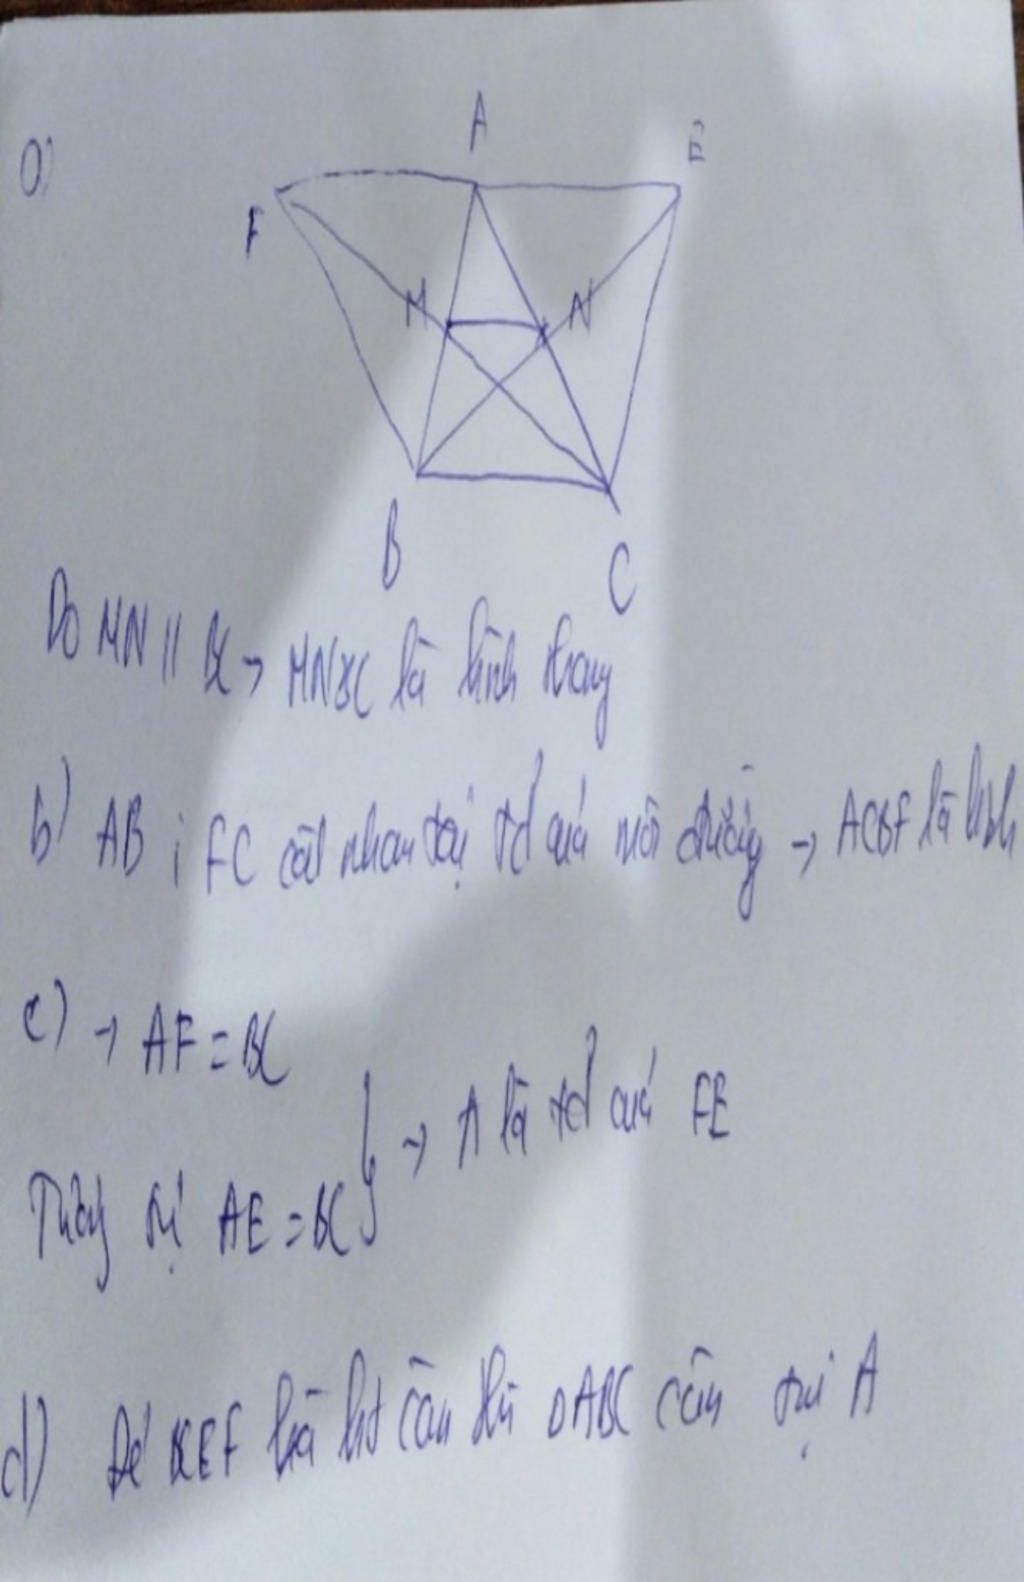 a)
A
E
F
M
N
B
C
Do MN // BC → MNBC là hình thang
b) AB ; FC cắt nhau tại tđ của mỗi đường → ACBF là hbh
c) → AF = BC
} → A là tđ của FE
Tương tự AE = BC
d) Để BCEF là ht cân thì ΔABC cân tại A